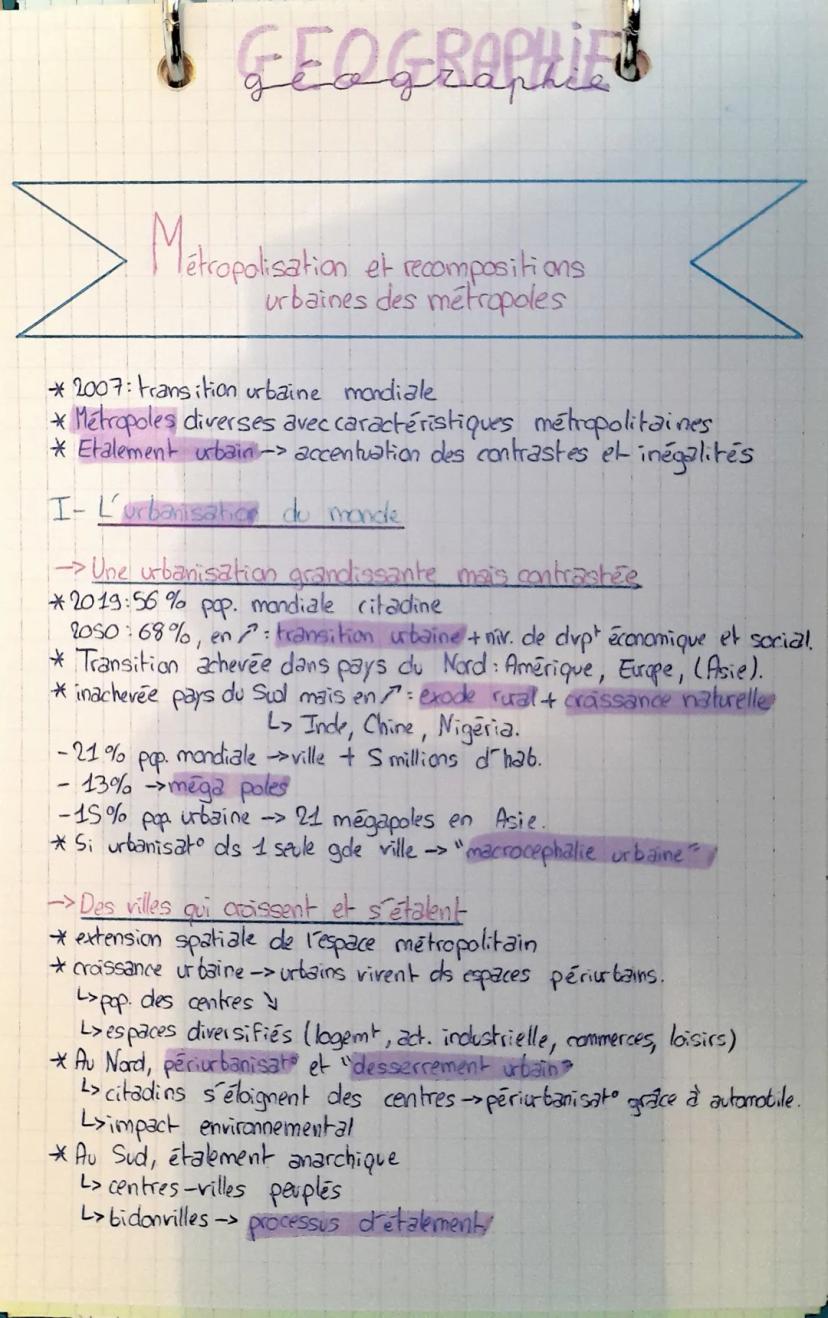 GEOGRAPHIE
géographie
Métropolisation et recompositions
urbaines des métropoles
* 2007: transition urbaine mondiale
* Métropoles diverses avec caractéristiques métropolitaines
* Etalement urbain -> accentuation des contrastes et inégalités
I- L'urbanisation du monde
-> Une urbanisation grandissante mais contrastée
* 2019: 56 % pop. mondiale citadine
2050 : 68%, en ↗ : transition urbaine + niv. de dvpt économique et social.
* Transition achevée dans pays du Nord : Amérique, Europe, (Asie).
* inachevée pays du Sud mais en ↗ : exode rural + croissance naturelle
↳ Inde, Chine, Nigéria.
- 21 % pop. mondiale -> ville + 5 millions d'hab.
- 13% -> méga poles
- 15% pop. urbaine -> 21 mégapoles en Asie.
* Si urbanisat° ds 1 seule gde ville -> "macrocéphalie urbaine"
-> Des villes qui croissent et s'étalent
* extension spatiale de l'espace métropolitain
* croissance urbaine -> urbains vivent ds espaces périurbains.
↳ pop. des centres ↘
↳ espaces diversifiés (logemt, act. industrielle, commerces, loisirs)
* Au Nord, périurbanisat° et "desserrement urbain"
↳ citadins s'éloignent des centres -> périurbanisat° grâce à automobile.
↳ impact environnemental
* Au Sud, étalement anarchique
↳ centres-villes peuplés
↳ bidonvilles -> processus d'étalement